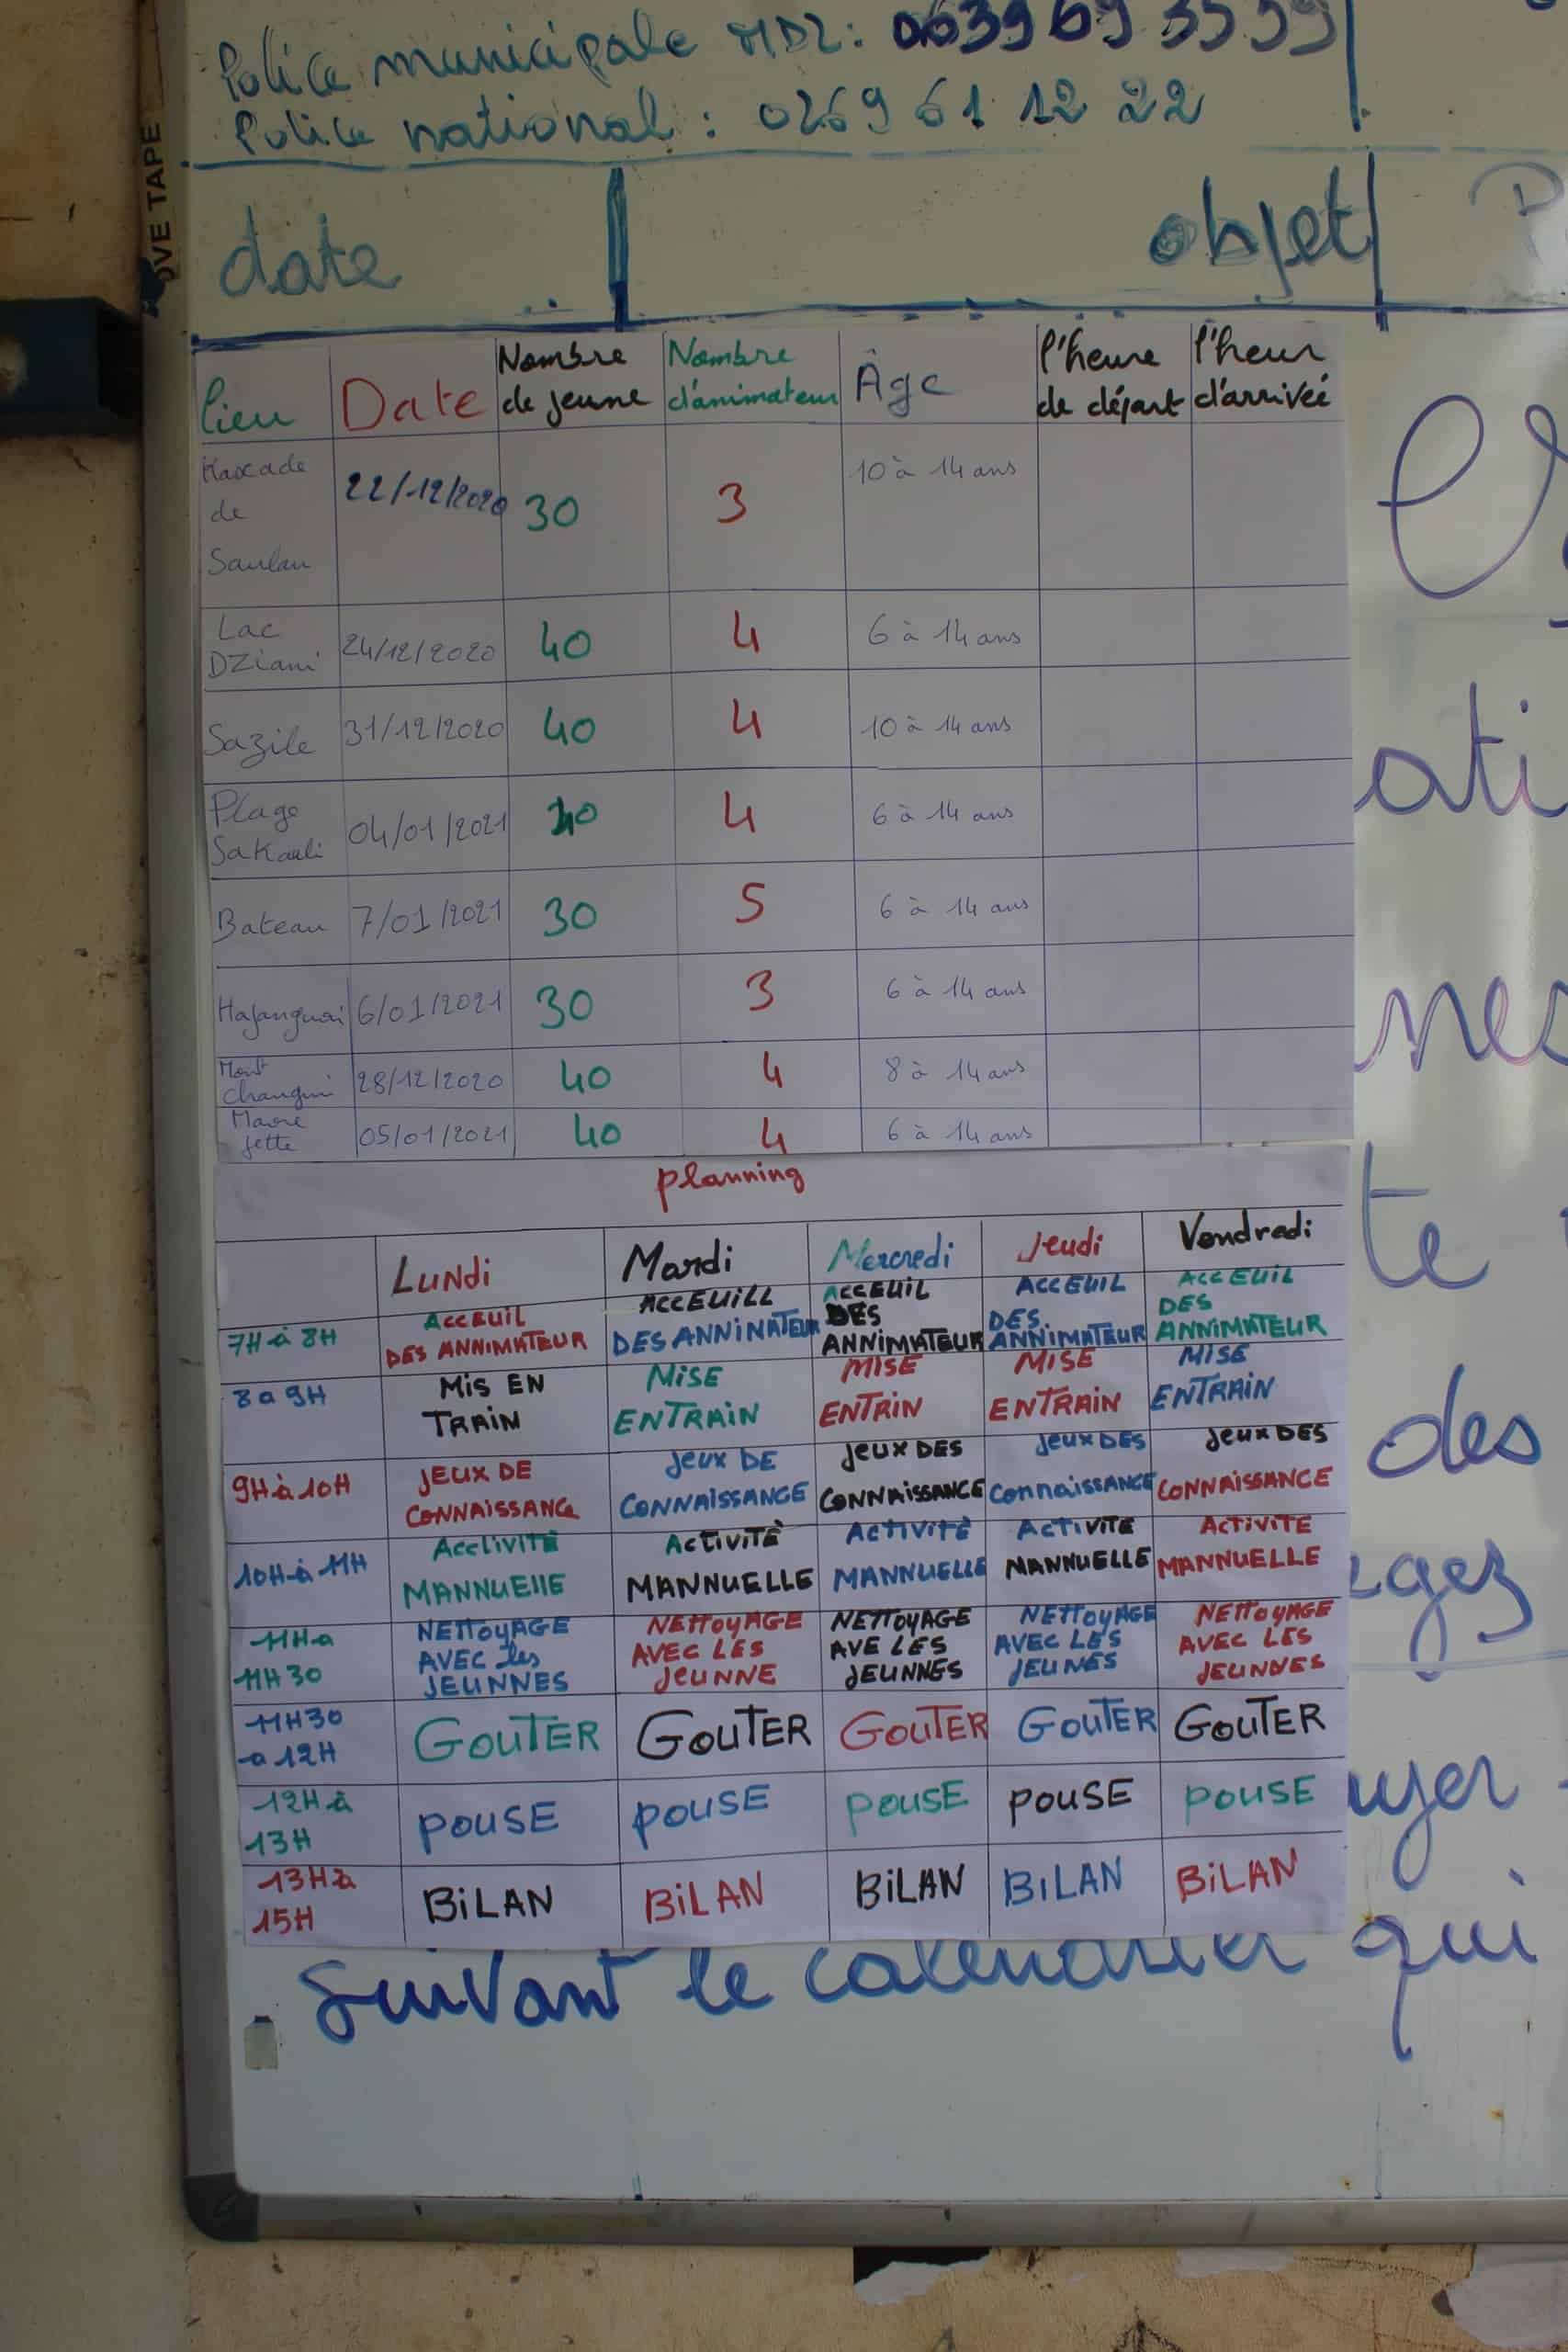 Police municipale MDZ: 0639 69 35 59
Police national : 0269 61 12 22
OVE TAPE
date objet
lieu Date Nombre de jeune Nombre d'animateur Âge l'heure de départ l'heur d'arrivéé
Kascade de Soulou 22/12/2020 30 3 10 à 14 ans
Lac DZiani 24/12/2020 40 4 6 à 14 ans
Sazile 31/12/2020 40 4 10 à 14 ans
Plage Sakouli 04/01/2021 40 4 6 à 14 ans
Bateau 7/01/2021 30 5 6 à 14 ans
Hajangua 6/01/2021 30 3 6 à 14 ans
Mont Changui 28/12/2020 40 4 8 à 14 ans
05/01/2021 40 4 6 à 14 ans
planning
LUNdi Mardi Mercredi Jeudi Vendredi
7H à 8H ACCEUIL DES ANNIMATEUR ACCEUILL DES ANNINATEUR ACCEUIL DES ANNIMATEUR ACCEUIL DES ANNIMATEUR ACCEUIL DES ANNIMATEUR
8 a 9H MIS EN TRAIN MISE ENTRAIN MISE ENTRIN MISE ENTRAIN MISE ENTRAIN
9H à 10H JEUX DE CONNAISSANCE JEUX DE CONNAISSANCE JEUX DES CONNAISSANCE JEUX DES CONNAISSANCE JEUX DES CONNAISSANCE
10H à 11H ACCTIVITÉ MANNUELLE ACTIVITÉ MANNUELLE ACTIVITÉ MANNUELLE ACTIVITE MANNUELLE ACTIVITE MANNUELLE
11H a 11H30 NETTOYAGE AVEC les JEUNNES NETTOYAGE AVEC LES JEUNNE NETTOYAGE AVE LES JEUNNES NETTOYAGE AVEC LES JEUNES NETTOYAGE AVEC LES JEUNNES
11H30 a 12H GOUTER GOUTER GOUTER GOUTER GOUTER
12H à 13H POUSE POUSE POUSE POUSE POUSE
13H à 15H BILAN BILAN BILAN BILAN BILAN
des
suivant le calendrier qui